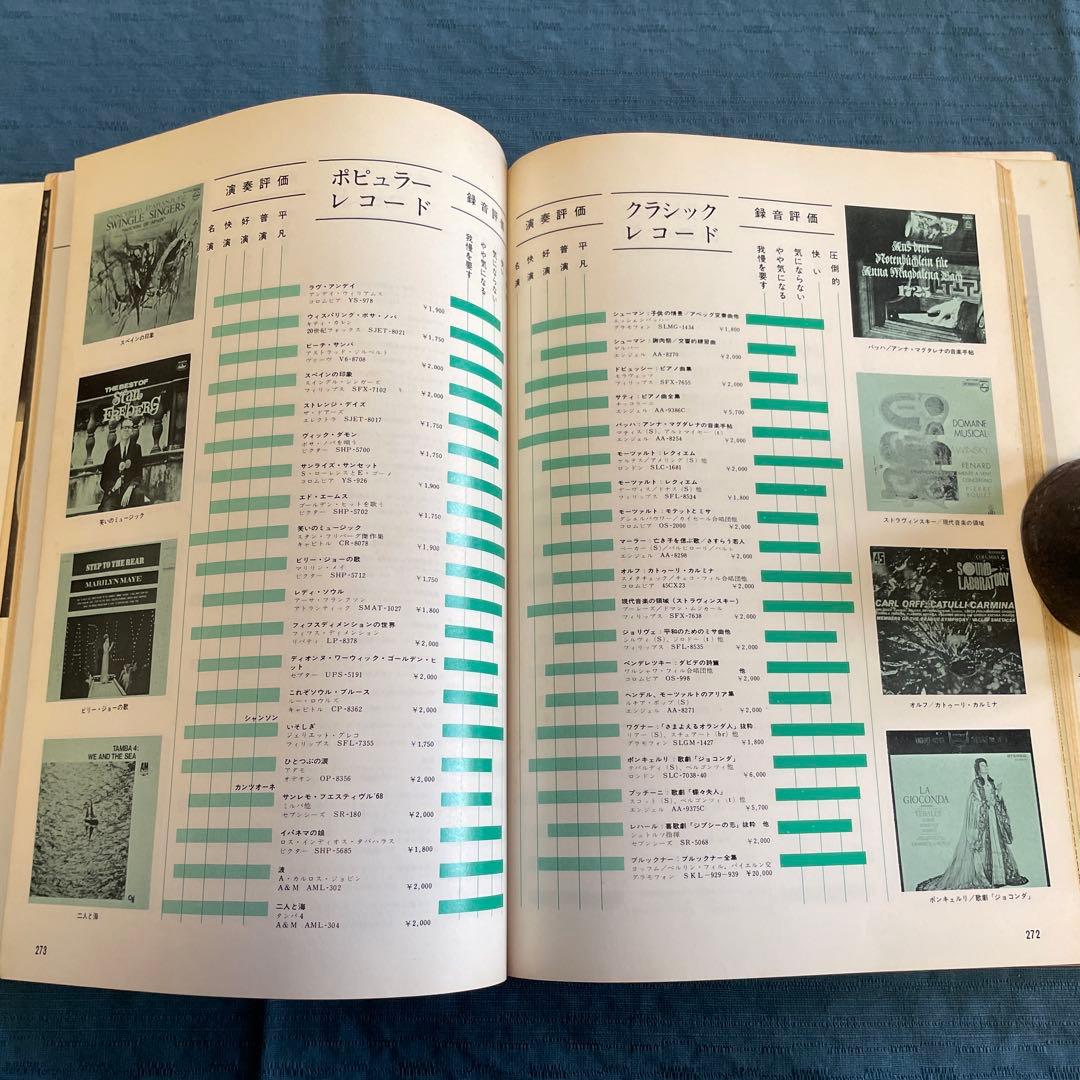 演奏評価
ポピュラー
レコード
録音評価
名演
快演
好演
普演
平凡
気にならない
やや気になる
我慢を要す
ラヴ・アンデイ
アンデイ・ウィリアムス
コロムビア YS-978 ¥1,900
ウィスパリング・ボサ・ノバ
キティ・カレン
20世紀フォックス SJET-8021 ¥1,750
ビーチ・サンバ
アストラッド・ジルベルト
ヴァーヴ V6-8708 ¥2,000
スペインの印象
スイングル・シンガーズ
フィリップス SFX-7102 ¥2,000
ストレンジ・デイズ
ザ・ドアーズ
エレクトラ SJET-8017 ¥1,750
ヴィック・ダモン
ボサ・ノバを唄う
ビクター SHP-5700 ¥1,750
サンライズ・サンセット
S・ローレンスとE・ゴーメ
コロムビア YS-926 ¥1,900
エド・エームス
ゴールデン・ヒットを歌う
ビクター SHP-5702 ¥1,750
笑いのミュージック
スタン・フリバーグ傑作集
キャピトル CR-8078 ¥1,900
ビリー・ジョーの歌
マリリン・メイ
ビクター SHP-5712 ¥1,750
レディ・ソウル
アーサ・フランクリン
アトランティック SMAT-1027 ¥1,800
フィフスディメンションの世界
フィフス・ディメンション
リバティ LP-8378 ¥2,000
ディオンヌ・ワーウィック・ゴールデン・ヒット
セプター UPS-5191 ¥2,000
これぞソウル・ブルース
ルー・ロウルズ
キャピトル CP-8362 ¥2,000
シャンソン
いそしぎ
ジェリエット・グレコ
フィリップス SFL-7355 ¥1,750
ひとつぶの涙
アダモ
オデオン OP-8356 ¥2,000
カンツオーネ
サンレモ・フエスティヴル'68
ミルバ他
セブンシーズ SR-180 ¥2,000
イパネマの娘
ロス・インディオス・タバハラス
ビクター SHP-5685 ¥1,800
波
A・カルロス・ジョビン
A&M AML-302 ¥2,000
二人と海
タンバ4
A&M AML-304 ¥2,000
SWINGLE SINGERS
スペインの印象
THE BEST OF
Stan
FREBERG
笑いのミュージック
STEP TO THE REAR
MARILYN MAYE
ビリー・ジョーの歌
TAMBA 4:
WE AND THE SEA
二人と海
273
演奏評価
クラシック
レコード
録音評価
名演
快演
好演
普演
平凡
圧倒的
快い
気にならない
やや気になる
我慢を要す
シューマン:子供の情景/アベッグ変奏曲他
エッシェンバッハー
グラモフォン SLMG-1434 ¥1,800
シューマン:謝肉祭/交響的練習曲
マルパー
エンジェル AA-8270 ¥2,000
ドビュッシー:ピアノ曲集
モラヴェッツ
フィリップス SFX-7655 ¥2,000
サティ:ピアノ曲全集
チッコリーニ
エンジェル AA-9386C ¥5,700
バッハ:アンナ・マグダレナの音楽手帖
マティス(S)、アルトマイヤー(t)
エンゼル AA-8254 ¥2,000
モーツァルト:レクィエム
ケルテス/アメリング(S)他
ロンドン SLC-1681 ¥2,000
モーツァルト:レクイエム
デーヴィス/ドナス(S)他
フィリップス SFL-8534 ¥1,800
モーツァルト:モテットとミサ
グシュルバウワー/カイセール合唱団他
コロムビア OS-2000 ¥2,000
マーラー:亡き子を偲ぶ歌/さすらう若人
ベーカー(S)/バルビローリ/ハルレ
エンジェル AA-8298 ¥2,000
オルフ:カトゥーリ・カルミナ
スメタチェック/チェコ・フィル合唱団他
コロムビア 45CX23 ¥2,000
現代音楽の領域(ストラヴィンスキー)
ブーレーズ/ドマン・ムジカール
フィリップス SFX-7638 ¥2,000
ジョリヴェ:平和のためのミサ曲他
シルヴィ(S)、ジロドー(t)他
フィリップス SFL-8535 ¥2,000
ペンデレツキー:ダビデの詩篇 他
ワルシャワ・フィル合唱団他
コロムビア OS-998 ¥2,000
ヘンデル、モーツァルトのアリア集
ルチア・ポップ(S)
エンジェル AA-8271 ¥2,000
ワグナー:「さまよえるオランダ人」抜粋
リアー(S)、スチュアート(br)他
グラモフォン SLGM-1427 ¥1,800
ポンキェルリ:歌劇「ジョコンダ」
テバルディ(S)、ベルゴンツィ他
ロンドン SLC-7038-40 ¥6,000
プッチーニ:歌劇「蝶々夫人」
スコット(S)、ベルゴンツィ(t)他
エンゼル AA-9375C ¥5,700
レハール:喜歌劇「ジプシーの恋」抜粋 他
シュトルツ指揮
セブンシーズ SR-5068 ¥2,000
ブルックナー:ブルックナー全集
ヨッフム/ベルリン・フィル、バイエルン交
グラモフォン SKL-929-939 ¥20,000
Aus dem
Notenbüchlein für
Anna Magdalena Bach
1725
バッハ/アンナ・マグタレナの音楽手帖
DOMAINE
MUSICAL
RENARD
PIERRE
BOULEZ
ストラヴィンスキー/現代音楽の領域
45
COLUMBIA
SOUND
LABORATORY
CARL ORFF:CATULLI CARMINA
MEMBERS OF THE PRAGUE SYMPHONY VACLAV SMETACEK
オルフ/カトゥーリ・カルミナ
LA
GIOCONDA
TEBALDI
ポンキェルリ/歌劇「ジョコンダ」
272